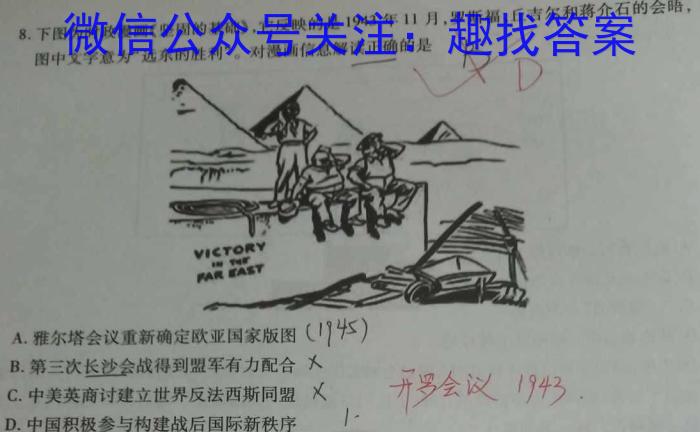 8. 下图 1943年11月,罗斯福、丘吉尔和蒋介石的会晤,
微信公众号关注:趣找答案
图中文字意为“远东的胜利”。对漫画信息解读正确的是
D
VICTORY
IN THE
FAR EAST
A. 雅尔塔会议重新确定欧亚国家版图 (1945)
B. 第三次长沙会战得到盟军有力配合 ×
C. 中美英商讨建立世界反法西斯同盟 ×
开罗会议 1943.
D. 中国积极参与构建战后国际新秩序